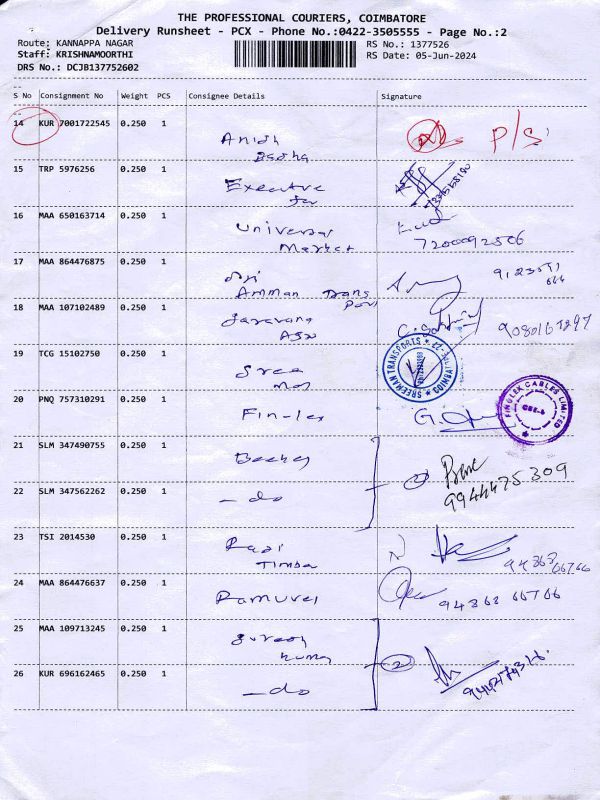 THE PROFESSIONAL COURIERS, COIMBATORE
Delivery Runsheet - PCX - Phone No.:0422-3505555 - Page No.:2
Route: KANNAPPA NAGAR
RS No.: 1377526
Staff: KRISHNAMOORTHI
RS Date: 05-Jun-2024
DRS No.: DCJB137752602
S No Consignment No Weight PCS Consignee Details Signature
14 KUR 7001722545 0.250 1 P/S
15 TRP 5976256 0.250 1 Executive
16 MAA 650163714 0.250 1 Universal
Market 7200092506
17 MAA 864476875 0.250 1
Amman Trans
18 MAA 107102489 0.250 1 Saravana
19 TCG 15102750 0.250 1 Sree
SREEHAN TRANSPORTS
20 PNQ 757310291 0.250 1 Fin-lex
FINOLEX CABLES LIMITED
CBE-6
21 SLM 347490755 0.250 1
9944475309
22 SLM 347562262 0.250 1 - do
23 TSI 2014530 0.250 1 Ravi
Timber 94863 66766
24 MAA 864476637 0.250 1 Ramuvel 94863 66766
25 MAA 109713245 0.250 1 Suresh
Kumar
2
26 KUR 696162465 0.250 1 - do